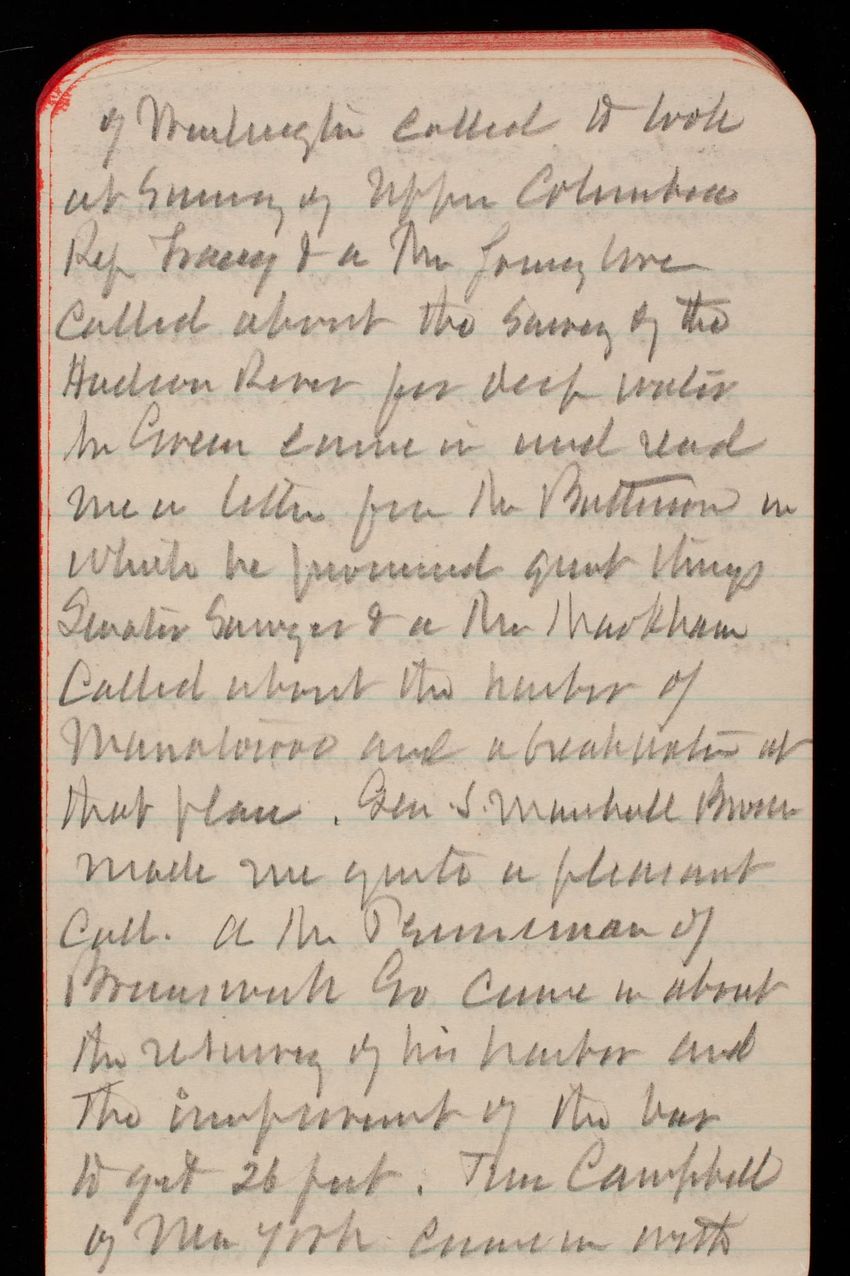 of Washington called to look
at Survey of Upper Columbia
Rep Tracey & a Mr
called about the Survey of the
Hudson River for deep water
Mr Green came in and read
me a letter from Mr Batterson in
which he promised great things
Senator Sawyer & a Mr Markham
Called about the harbor of
Manatowoc and a breakwater at
that place. Gen. S. Marshall Brown
made me quite a pleasant
Call. A Mr of
Brunswick Ga came in about
the resurvey of his harbor and
The improvement of the bar
to get 26 feet. Tim Campbell
of New York came in with